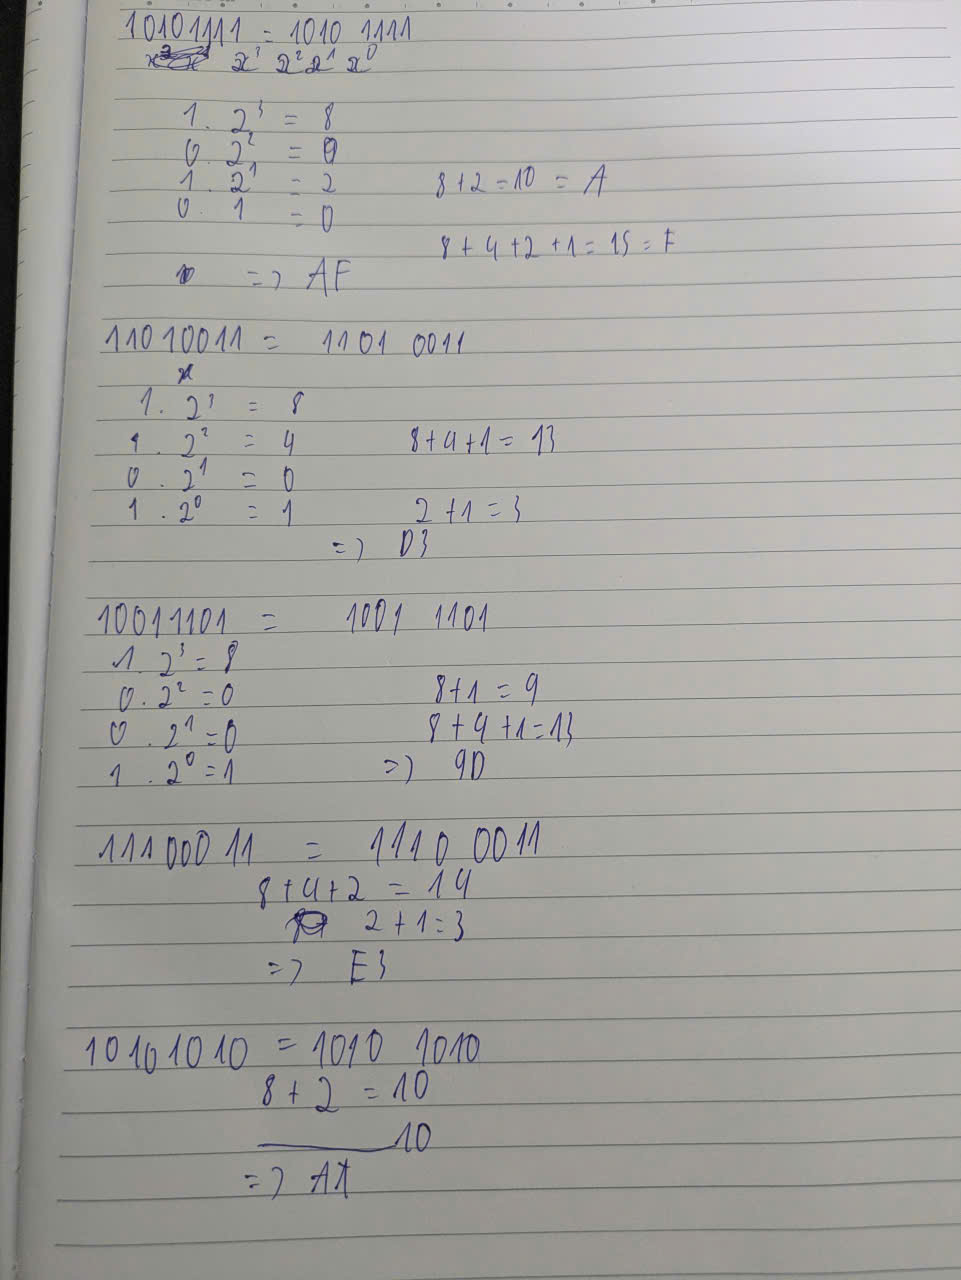 10101111 = 1010 1111
x³ x² x¹ x⁰
1. 2³ = 8
0. 2² = 0
1. 2¹ = 2 8+2=10 = A
0. 1 = 0
8+4+2+1=15=F
=> AF
11010011 = 1101 0011
1. 2³ = 8
1. 2² = 4 8+4+1=13
0. 2¹ = 0
1. 2⁰ = 1 2+1=3
=> D3
10011101 = 1001 1101
1. 2³ = 8
0. 2² = 0 8+1=9
0. 2¹ = 0 8+4+1=13
1. 2⁰ = 1 => 9D
11100011 = 1110 0011
8+4+2 = 14
2+1=3
=> E3
10101010 = 1010 1010
8+2 = 10
10
=> AA